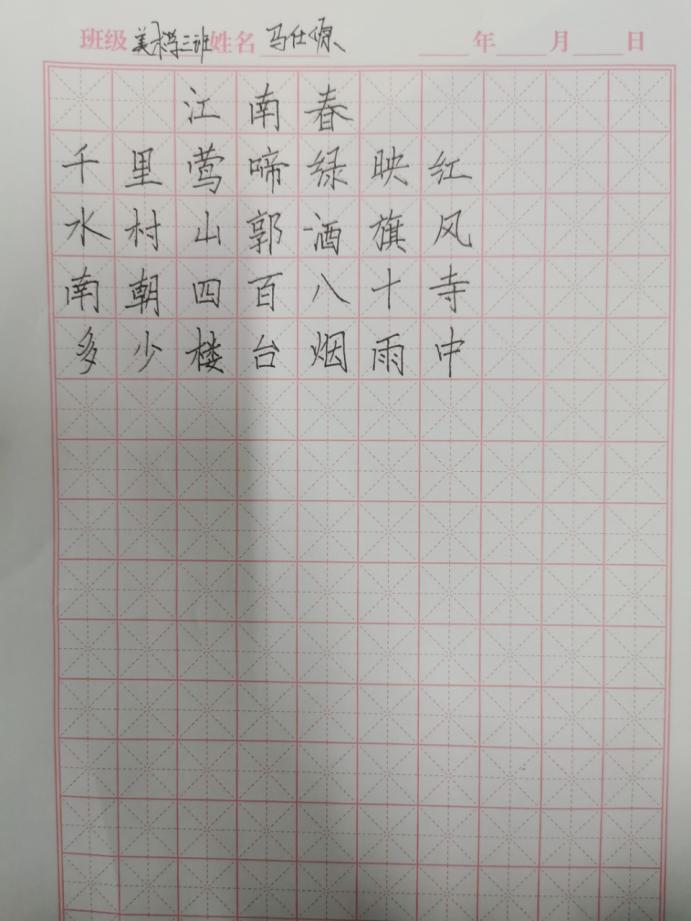 班级 美术学三班 姓名 马仕源 年 月 日
江南春
千里莺啼绿映红
水村山郭酒旗风
南朝四百八十寺
多少楼台烟雨中